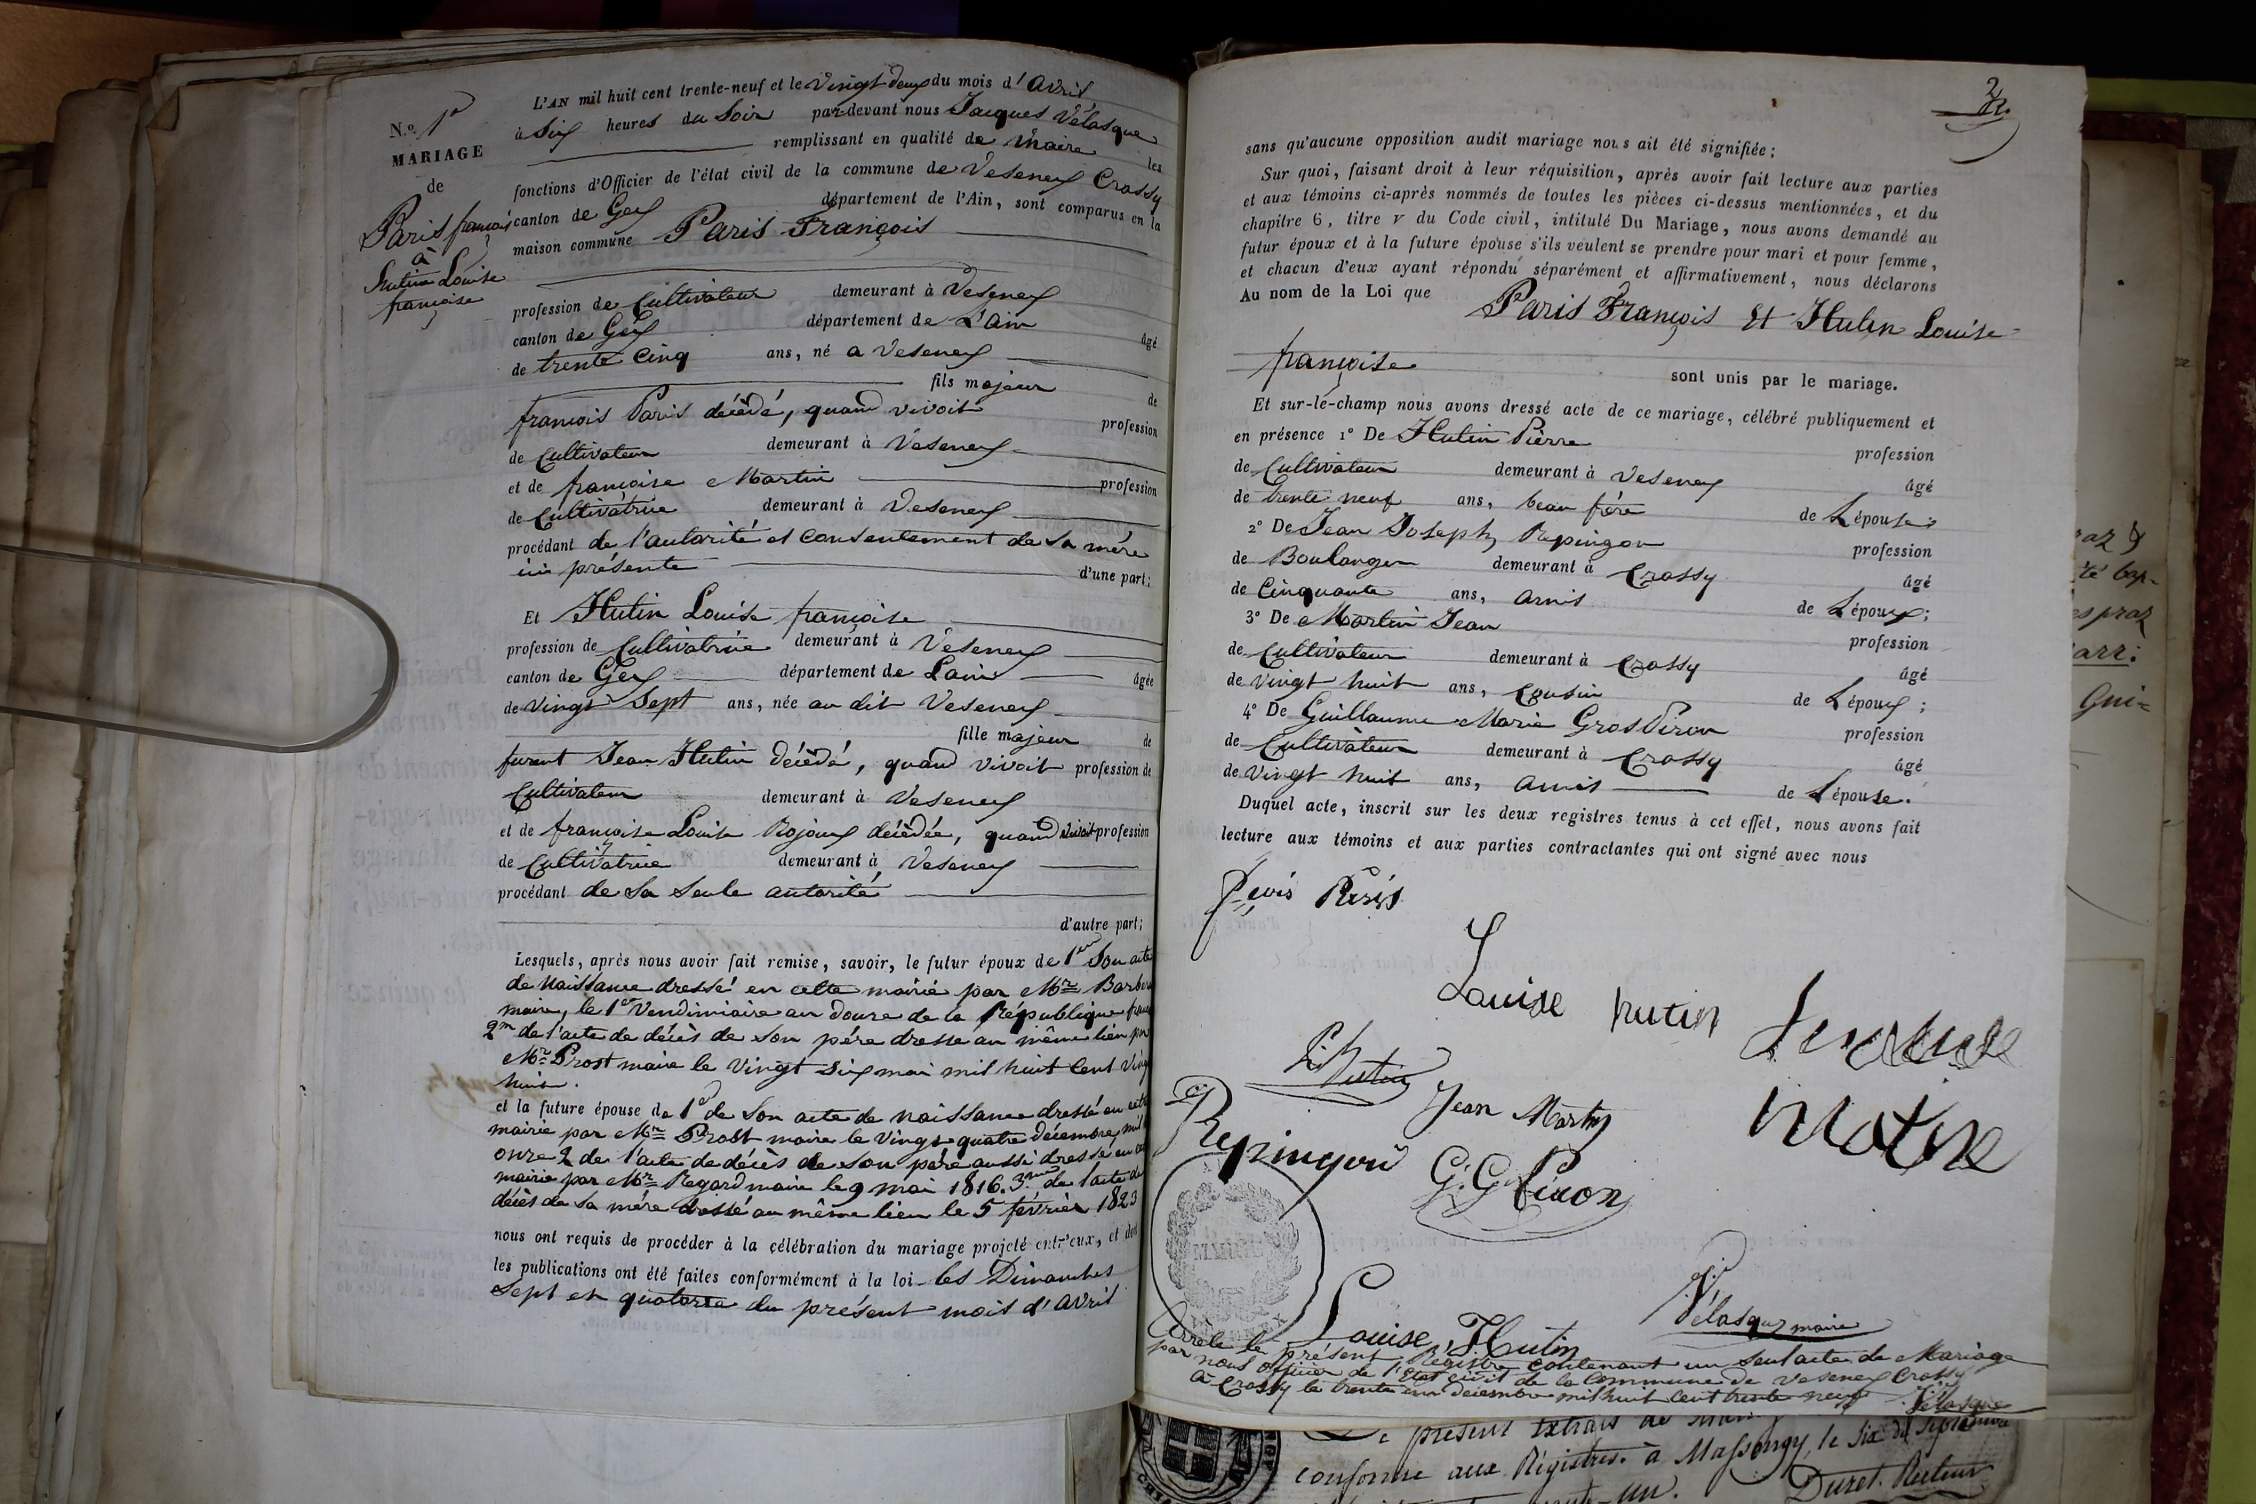 N.o 1er
MARIAGE
de
Paris françois
à
Hutin Louise
françoise
L'AN mil huit cent trente-neuf et le Vingt deux du mois d'Avril
à Six heures du Soir par-devant nous Jacques Vélasque
remplissant en qualité de Maire les
fonctions d'Officier de l'état civil de la commune de Vesenex Crassy
canton de Gex département de l'Ain, sont comparus en la
maison commune Paris François
profession de Cultivateur demeurant à Vesenex
canton de Gex département de L'Ain âgé
de trente Cinq ans, né a Vesenex
fils majeur de
françois Paris décédé, quand vivoit profession
de Cultivateur demeurant à Vesenex
et de françoise Martin profession
de Cultivatrice demeurant à Vesenex
procédant de l'autorité et Consentement de Sa mére
ici présente d'une part;
Et Hutin Louise françoise
profession de Cultivatrice demeurant à Vésenex
canton de Gex département de Lain âgée
de Vingt Sept ans, née au dit Vesenex
fille majeur de
furent Jean Hutin décédé, quand vivoit profession de
Cultivateur demeurant à Vesenex
et de françoise Louise Rojoux décédée, quand vivoit profession
de Cultivatrice demeurant à Vesenex
procédant de Sa Seule autorité
d'autre part;
Lesquels, après nous avoir fait remise, savoir, le futur époux de 1er Son acte
de Naissance dressé en cette mairie par Mr
maire, le 1er Vendimiaire an douze de la République
2m de l'acte de décès de Son pére dressé au même lieu
Mr Prost maire le Vingt Six mai mil huit Cent Vingt
huit.
et la future épouse de 1o de Son acte de naissance dressé en cette
mairie par Mr Prost maire le Vingt quatre décembre mil
onze 2 de l'acte de décès de son pére aussi dressé en
mairie par Mr Regard maire le 9 mai 1816. 3me de l'acte de
décès de Sa mére dressé au même lieu le 5 février 1823
nous ont requis de procéder à la célébration du mariage projeté entr'eux, et dont
les publications ont été faites conformément à la loi les Dimanches
Sept et quatorze du présent mois d'Avril
2
sans qu'aucune opposition audit mariage nous ait été signifiée;
Sur quoi, faisant droit à leur réquisition, après avoir fait lecture aux parties
et aux témoins ci-après nommés de toutes les pièces ci-dessus mentionnées, et du
chapitre 6, titre v du Code civil, intitulé Du Mariage, nous avons demandé au
futur époux et à la future épouse s'ils veulent se prendre pour mari et pour femme,
et chacun d'eux ayant répondu séparément et affirmativement, nous déclarons
Au nom de la Loi que Paris François Et Hutin Louise
françoise sont unis par le mariage.
Et sur-le-champ nous avons dressé acte de ce mariage, célébré publiquement et
en présence 1o De Hutin Pièrre profession
de Cultivateur demeurant à Vesenex âgé
de trente neuf ans, beau frére de L'épouse;
2o De Jean Joseph Repingon profession
de Boulanger demeurant à Crassy âgé
de Cinquante ans, amis de L'époux;
3o De Martin Jean profession
de Cultivateur demeurant à Crassy âgé
de Vingt huit ans, Cousin de L'époux;
4o De Guillaume Marie Gros Piron profession
de Cultivateur demeurant à Crassy âgé
de Vingt huit ans, amis de L'épouse.
Duquel acte, inscrit sur les deux registres tenus à cet effet, nous avons fait
lecture aux témoins et aux parties contractantes qui ont signé avec nous
Paris
Louise hutin
P. Hutin
Jean Martin
Repingon
G. G Piron
MAIRIE
Louise Hutin
Vélasque maire
Arrêté le présent Régistre Contenant un Seul acte de Mariage
par nous officier de l'Etat civil de la Commune de Vesenex Crassy
à Crassy le trente un décembre mil huit Cent trente neuf Vélasque
présent Extrait de
conforme aux Régistres. à Massongy le six de Septembre
un. Duret. Recteur